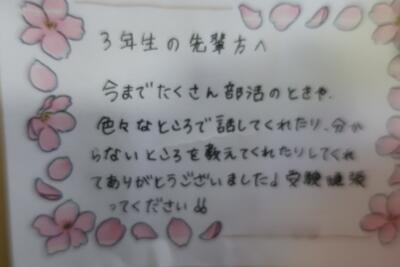 3年生の先輩方へ
今までたくさん部活のときや、
色々なところで話してくれたり、分か
らないところを教えてくれたりしてくれ
てありがとうございました♩受験頑張
ってください!!